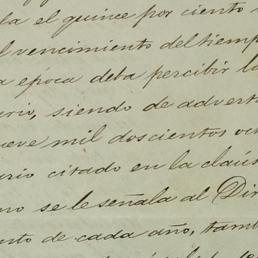 la el quince por ciento
el vencimiento del tiemp
a época deba percibir la
siendo de advert
ueve mil doscientos
rio citado en la cláus
no se le señala al Dir
nto de cada año, tamb